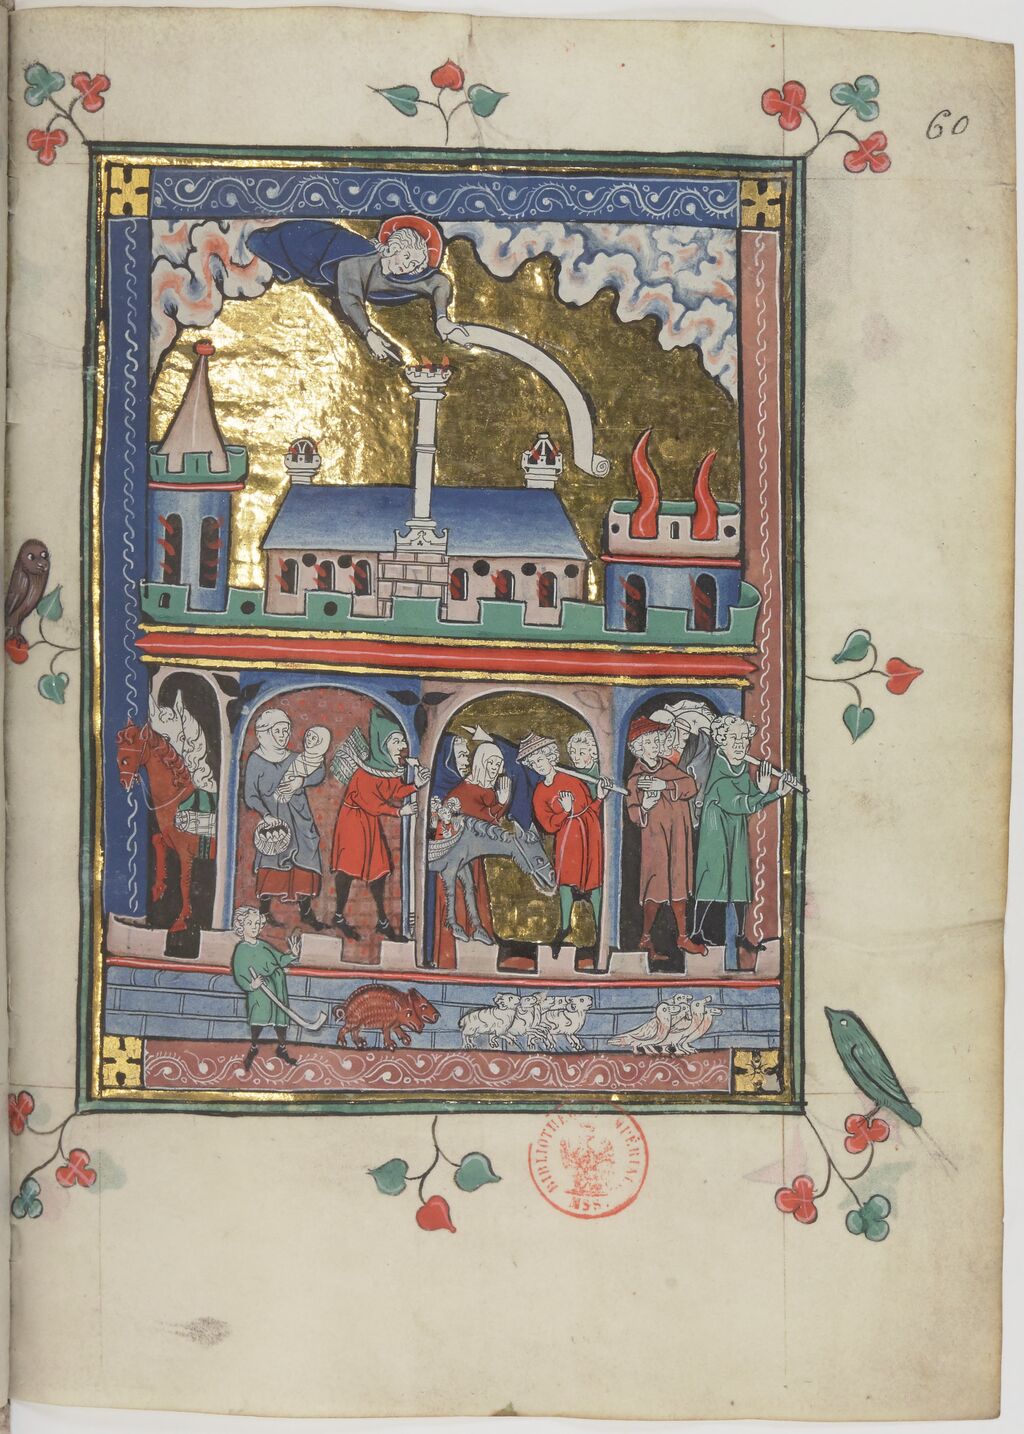 60
BIBLIOTHÈQUE IMPÉRIALE
MSS.